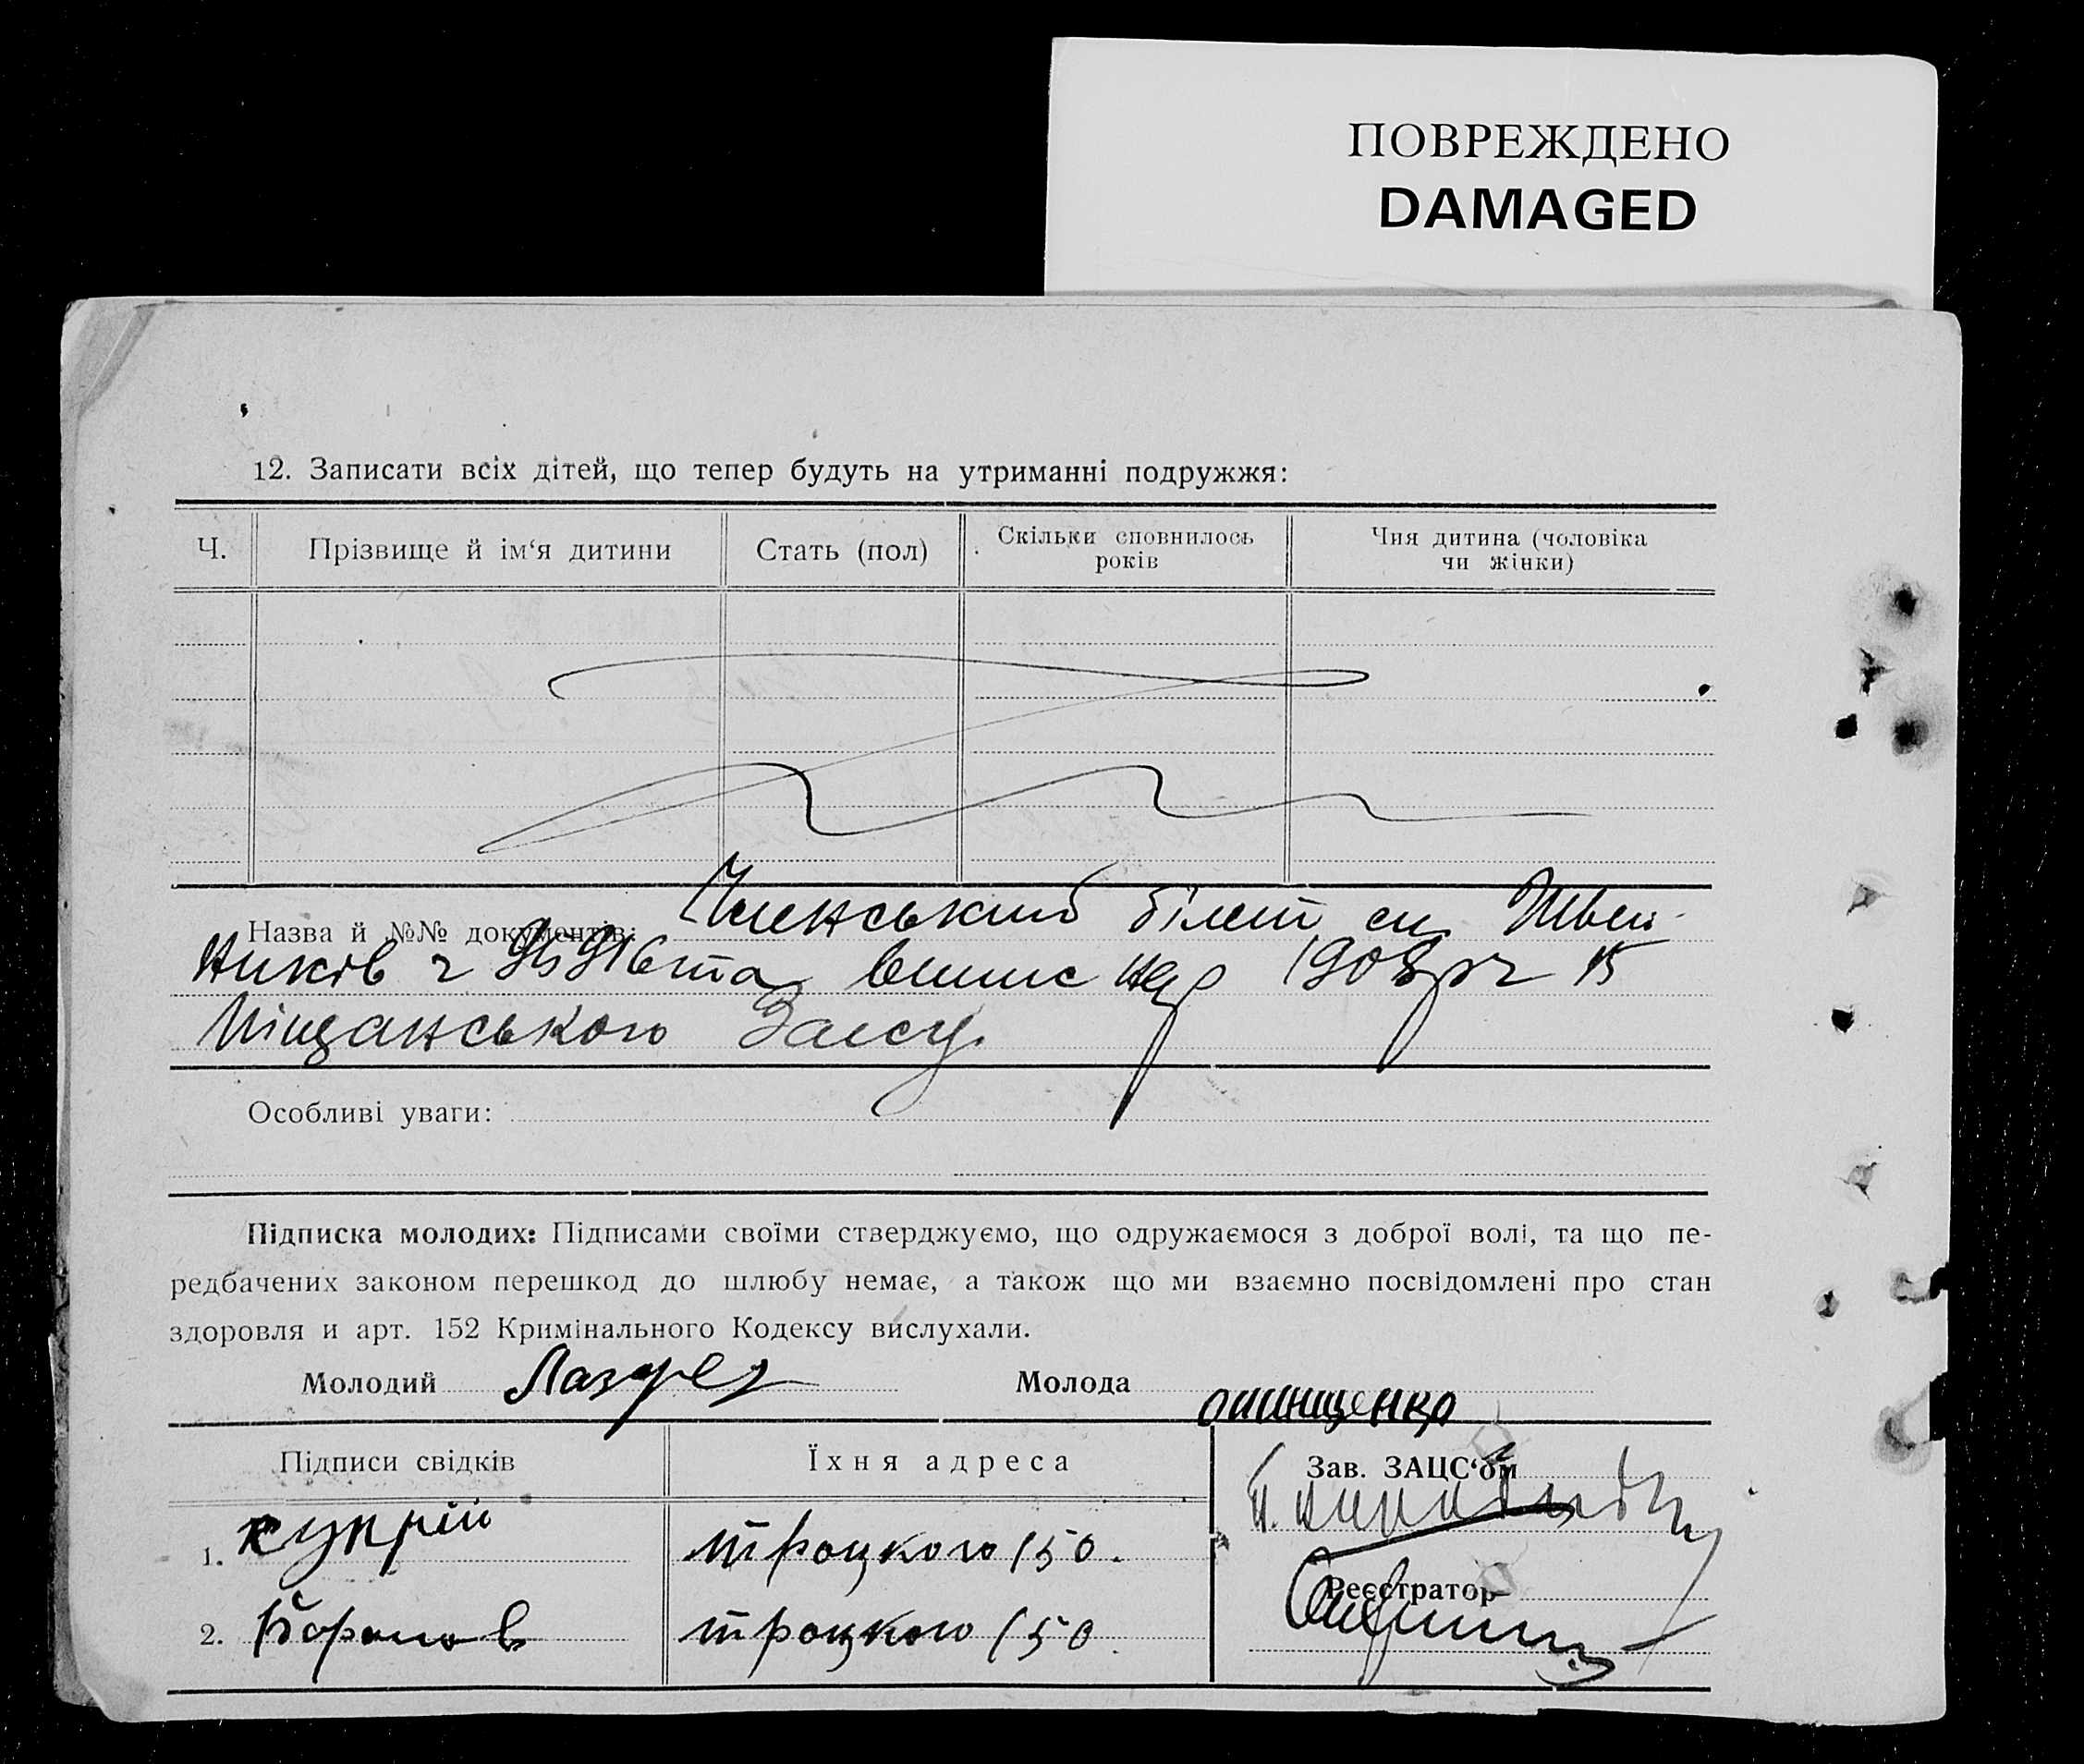 ПОВРЕЖДЕНО
DAMAGED
12. Записати всіх дітей, що тепер будуть на утриманні подружжя:
Ч.
Прізвище й ім‘я дитини
Стать (пол)
Скільки сповнилось
років
Чия дитина (чоловіка
чи жінки)
Назва й №№ документів: Членський білет сп. Швей-
ників ч та випис 1908 р ч 15
Міщанського Загсу.
Особливі уваги:
Підписка молодих: Підписами своїми стверджуємо, що одружаємося з доброї волі, та що пе-
редбачених законом перешкод до шлюбу немає, а також що ми взаємно посвідомлені про стан
здоровля и арт. 152 Кримінального Кодексу вислухали.
Молодий
Молода онищенко
Підписи свідків
Їхня адреса
Зав. ЗАЦС‘ом
1. куприй
троцкого 150.
Реєстратор
2.
троцкого 150.